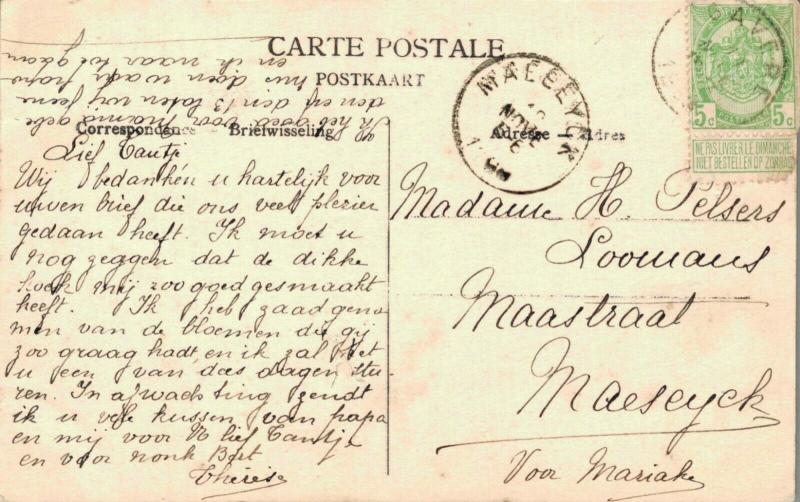 CARTE POSTALE
POSTKAART
Correspondance Briefwisseling
Adresse Adres
Lief Tantje
Wij bedanken u hartelijk voor
uwen brief die ons veel plezier
gedaan heeft. Ik moet u
nog zeggen dat de dikke
koek mij zoo goed gesmaakt
heeft. Ik heb zaad geno-
men van de bloemen die gij
zoo graag hadt, en ik zal het
u een van dees dagen stu-
ren. In afwachting zendt
ik u vele kussen van papa
en mij voor U lief Tantje
en voor nonk Bert
Thérèse
Ik heb goed voor mama gebe
den en den 13 laten wij eene
mis doen waar papa
en ik naar toe gaan
Madame H. Pelsers
Loomans
Maastraat
Maeseyck
Voor Mariake
MAESEYCK
NOV
GAVERE
5c 5c
NE PAS LIVRER LE DIMANCHE
NIET BESTELLEN OP ZONDAG